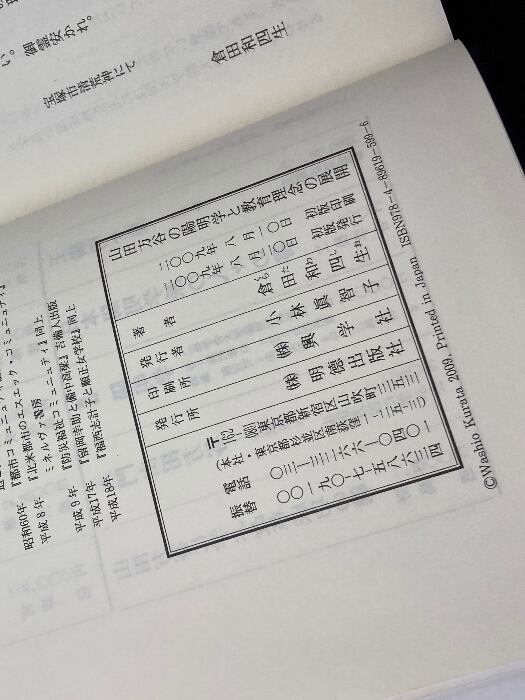 い。御霊安かれ。
宝塚市清荒神にて
倉田和四生
昭和60年
『都市コミュニティ
平成8年
『北米都市のエスニック・コミュニティ』
ミネルヴァ書房
平成9年
『防災福祉コミュニティ』同上
平成17年
『留岡幸助と備中高梁』吉備人出版
平成18年
『福西志計子と順正女学校』同上
山田方谷の陽明学と教育理念の展開
二〇〇九年八月一〇日 初版印刷
二〇〇九年八月二〇日 初版発行
著者 倉田和四生
くらたわしお
発行者 小林眞智子
印刷所 ㈱興学社
発行所 ㈱明德出版社
〒162-
東京都新宿区山吹町三五三
(本社・東京都杉並区南荻窪一-二五-三)
電話 〇三-三二六六-〇四〇一
振替 〇〇一九〇-七-五八六三四
©Washio Kurata 2009 Printed in Japan ISBN978-4-89619-590-6